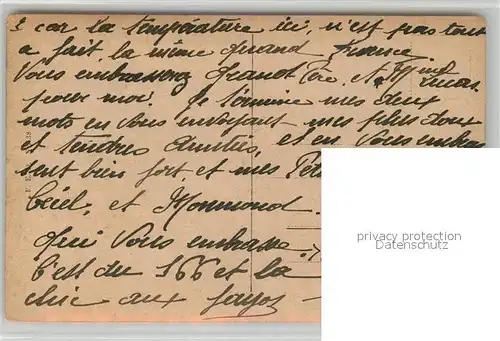 car la température ici, n'est pas tout
a fait la même quand France.
Vous embrasserez Grand Père et Mme Lucas
pour moi. Je termine mes deux
mots en vous envoyant mes plus doux
et tendres amitiés, et en vous embras
sent bien fort et mes Pet
Cécil, et
qui vous embrasse
C'est du 166 et la
clic aux
privacy protection
Datenschutz